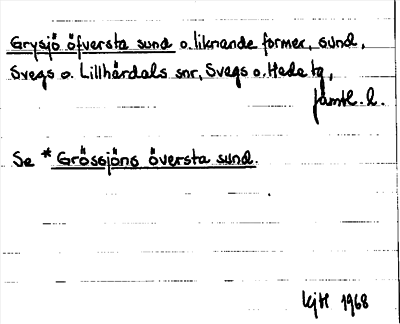 Grysjö öfversta sund o. liknande former, sund,
Svegs o. Lillhärdals snr, Svegs o. Hede tg,
Jämtl. l.
Se * Grössjöns översta sund.
1968